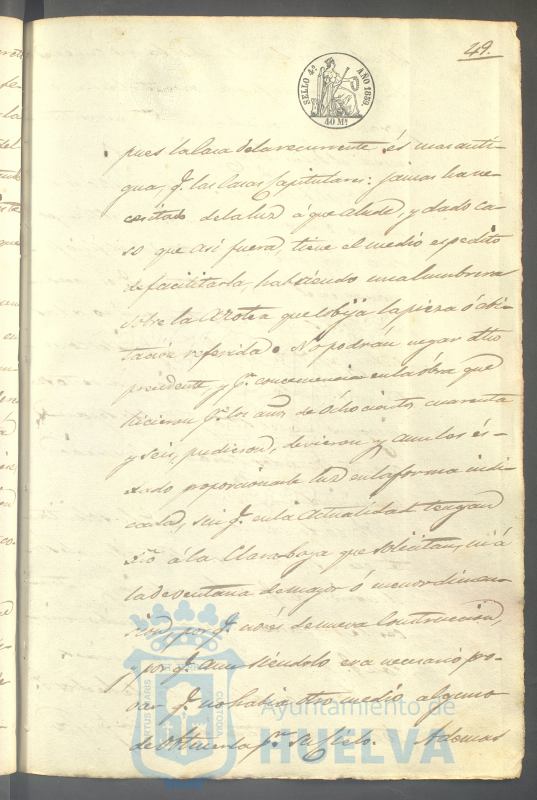 49.
SELLO 4º AÑO 1859
40 Ms
pues la Casa de la recurrente és mas anti-
gua, q.e las Casas Capitulares: jamas ha ne-
cesitado de la luz á que alude, y dado ca-
so que asi fuera, tiene el medio espedito
de facilitarla, habriendo una lumbrera
sobre la Azotea que cobija la pieza ó abi-
tación referida. No podrán negar dho
presidente y q.e en la óbra que
hicieron p.r los años de óchocientos cuarenta
y seis, pudieron, devieron y aun les és
dado proporcionarle luz en la forma indi-
cada, sin q.e en la actualidad tengan
dro á la Claraboya que solicitan, ni á
la de ventana de mayor ó menor dimen-
sion, por q.e no és de nueva Construccion,
y por q.e aun siendolo era necesario pro-
var q.e no habia otro medio alguno
de obtenerla p.r su Cielo. Ademas
Ayuntamiento de
HUELVA
PORTUS MARIS
CUSTODIA